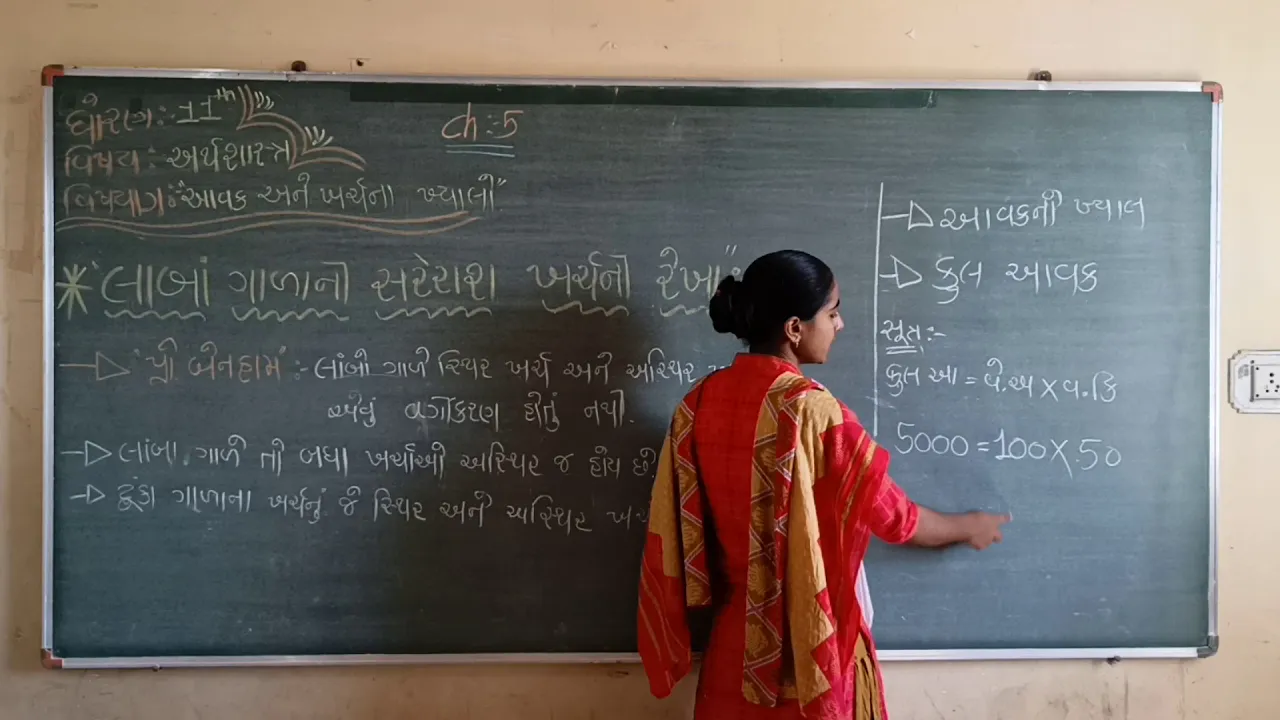 ધોરણ:- 11th
ch:-5
વિષય: અર્થશાસ્ત્ર
વિષયાંગ:- "આવક અને ખર્ચના ખ્યાલો"
* "લાબાં ગાળાની સરેરાશ ખર્ચની રેખા"
→ પ્રો બેનહામ :- લાંબો ગાળે સ્થિર ખર્ચ અને અસ્થિર
એવું વર્ગીકરણ હોતું નથી.
→ લાંબા ગાળે તો બધા ખર્ચાઓ અસ્થિર જ હોય છે
→ ટૂંકા ગાળાના ખર્ચનું જ સ્થિર અને અસ્થિર
→ આવકની ખ્યાલ
→ કુલ આવક
સૂત્ર:-
કુલ આ = વે.અ x વ.કિ
5000 = 100 X 50